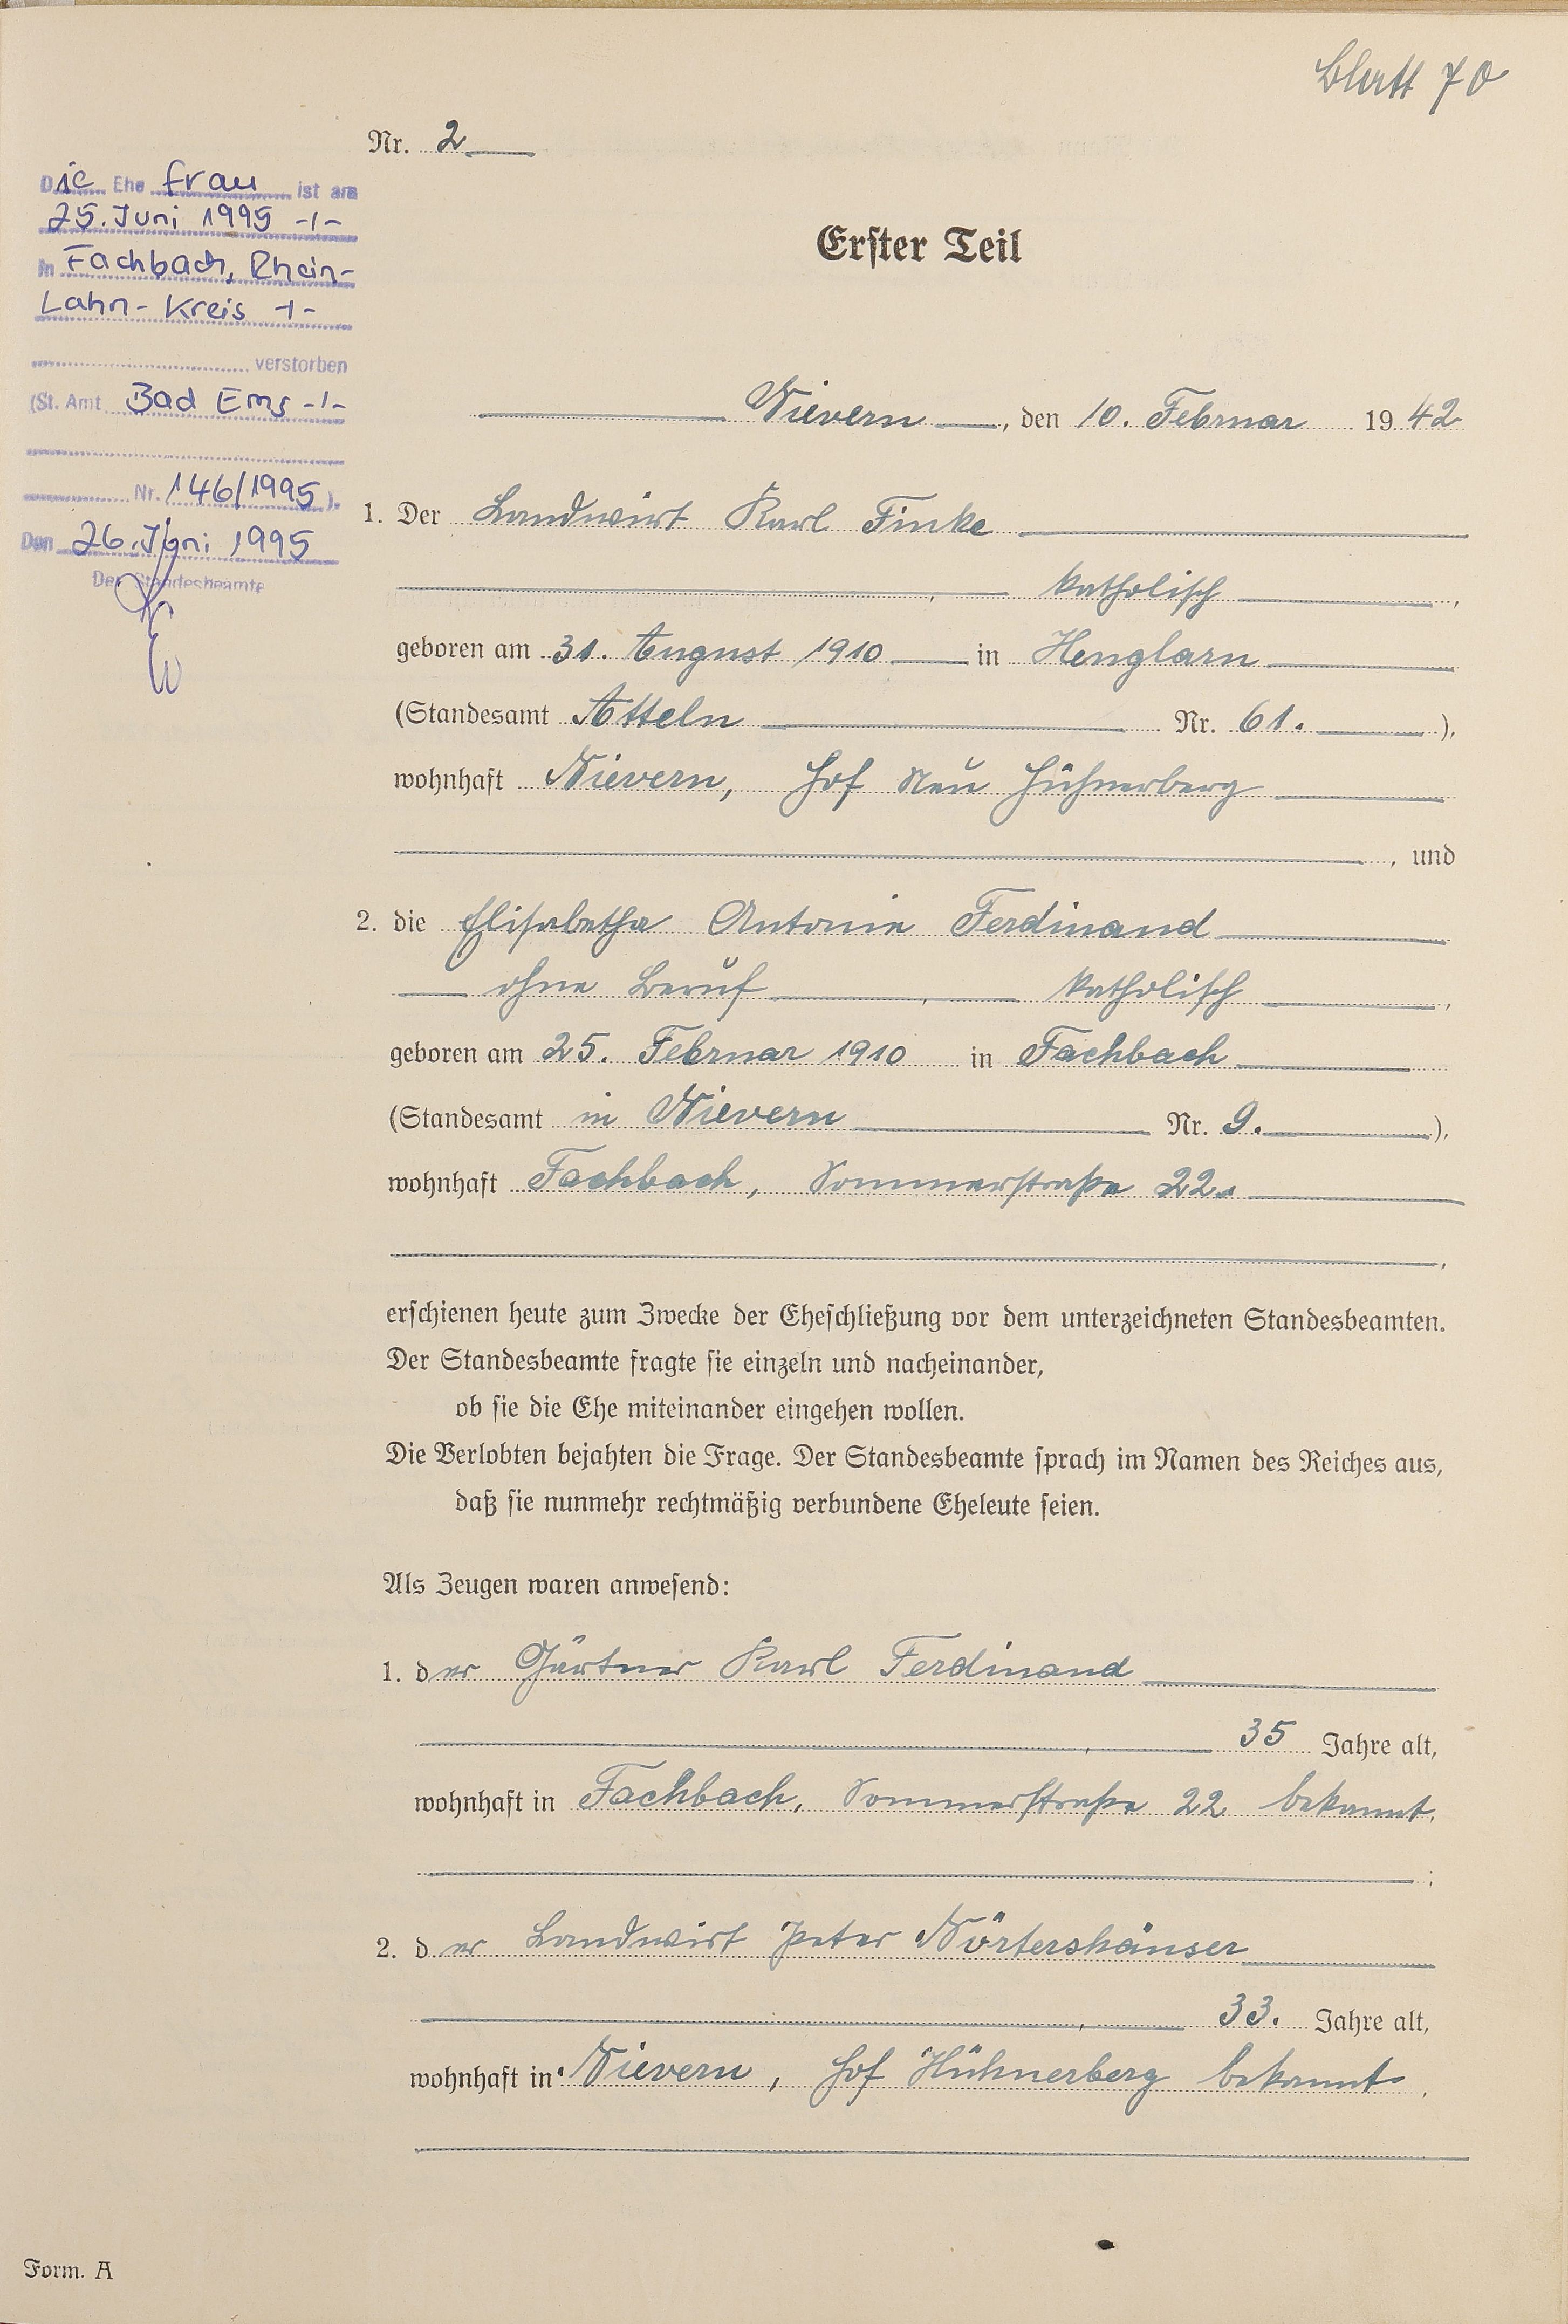 Blatt 70
Nr. 2
Die Ehefrau ist am
25. Juni 1995 -/-
in Fachbach, Rhein-
Lahn-Kreis -/-
verstorben
(St. Amt Bad Ems -/-
Nr. 146/1995).
Den 26. Juni 1995
Der Standesbeamte
Erster Teil
Nievern, den 10. Februar 1942
1. Der Landwirt Karl Finke
, katholisch,
geboren am 31. August 1910 in Henglarn
(Standesamt Atteln Nr. 61.),
wohnhaft Nievern, Hof Neu Hühnerberg
, und
2. die Elisabetha Antonie Ferdinand
ohne Beruf, katholisch,
geboren am 25. Februar 1910 in Fachbach
(Standesamt in Nievern Nr. 9.),
wohnhaft Fachbach, Sommerstraße 22.
,
erschienen heute zum Zwecke der Eheschließung vor dem unterzeichneten Standesbeamten.
Der Standesbeamte fragte sie einzeln und nacheinander,
ob sie die Ehe miteinander eingehen wollen.
Die Verlobten bejahten die Frage. Der Standesbeamte sprach im Namen des Reiches aus,
daß sie nunmehr rechtmäßig verbundene Eheleute seien.
Als Zeugen waren anwesend:
1. der Gärtner Karl Ferdinand
, 35 Jahre alt,
wohnhaft in Fachbach, Sommerstraße 22 bekannt.
;
2. der Landwirt Peter Nörtershäuser
, 33. Jahre alt,
wohnhaft in Nievern, Hof Hühnerberg bekannt.
Form. A